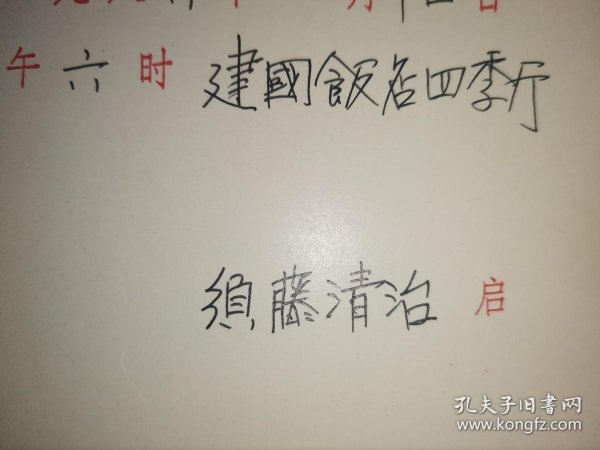 日
午六时 建國飯店四季厅
須藤清治 启
孔夫子旧書网
www.kongfz.com